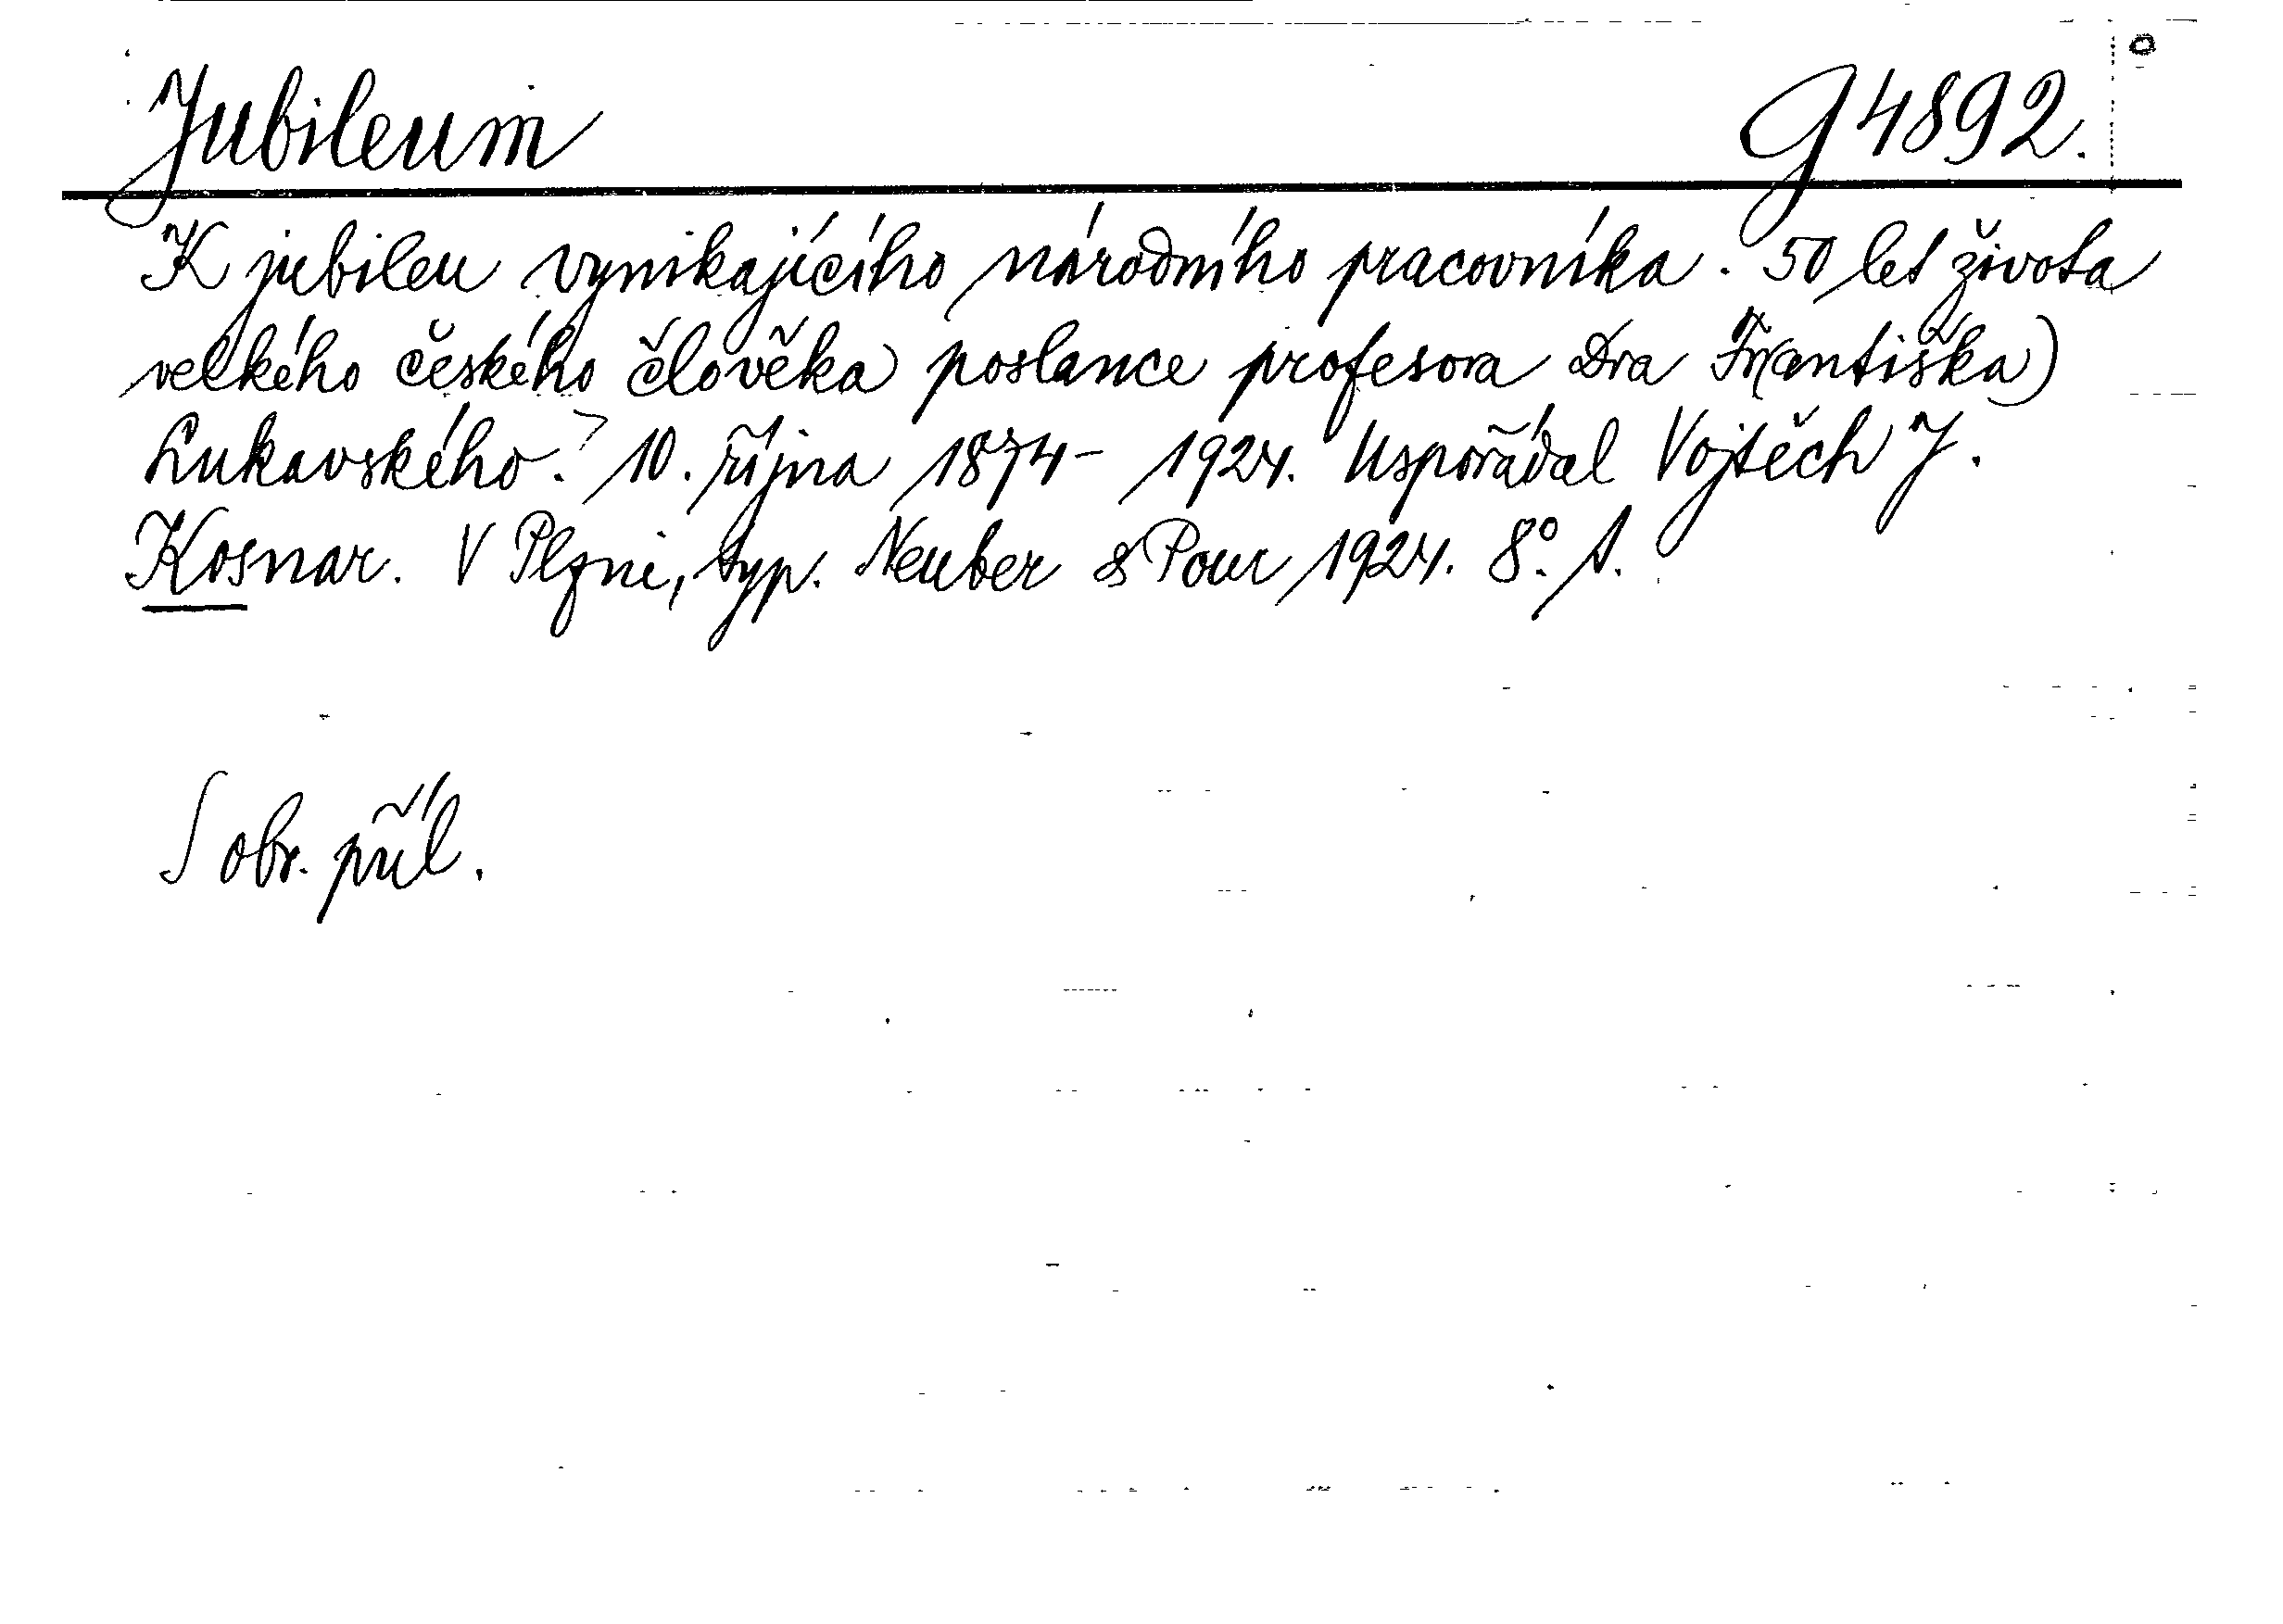 Jubileum G 4892.
K jubileu vynikajícího národního pracovníka. 50 let života
velkého českého člověka poslance profesora Dra Fr(antiška)
Lukavského. 10. října 1874 - 1924. Uspořádal Vojtěch J.
Kosnar. V Plzni, typ. Neuber & Pour 1924. 8°.
S obr. příl.